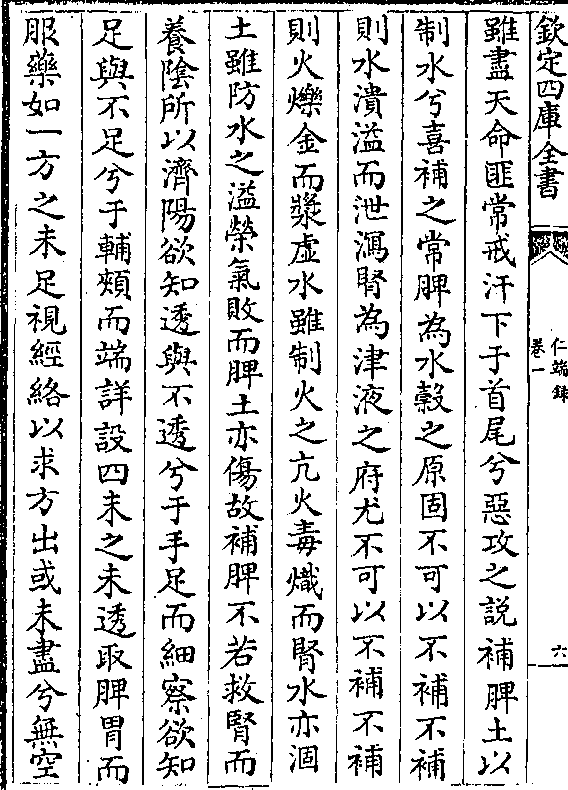 欽定四庫全書
仁端錄
卷一
六
雖盡天命匪常戒汗下于首尾兮惡攻之説補脾土以
制水兮喜補之常脾為水榖之原固不可以不補不補
則水潰溢而泄瀉腎為津液之府尤不可以不補不補
則火爍金而漿虛水雖制火之亢火毒熾而腎水亦涸
土雖防水之溢榮氣敗而脾土亦傷故補脾不若救腎而
養陰所以濟陽欲知透與不透兮于手足而細察欲知
足與不足兮于輔頰而端詳設四未之未透取脾胃而
服藥如一方之未足視經絡以求方出或未盡兮無空